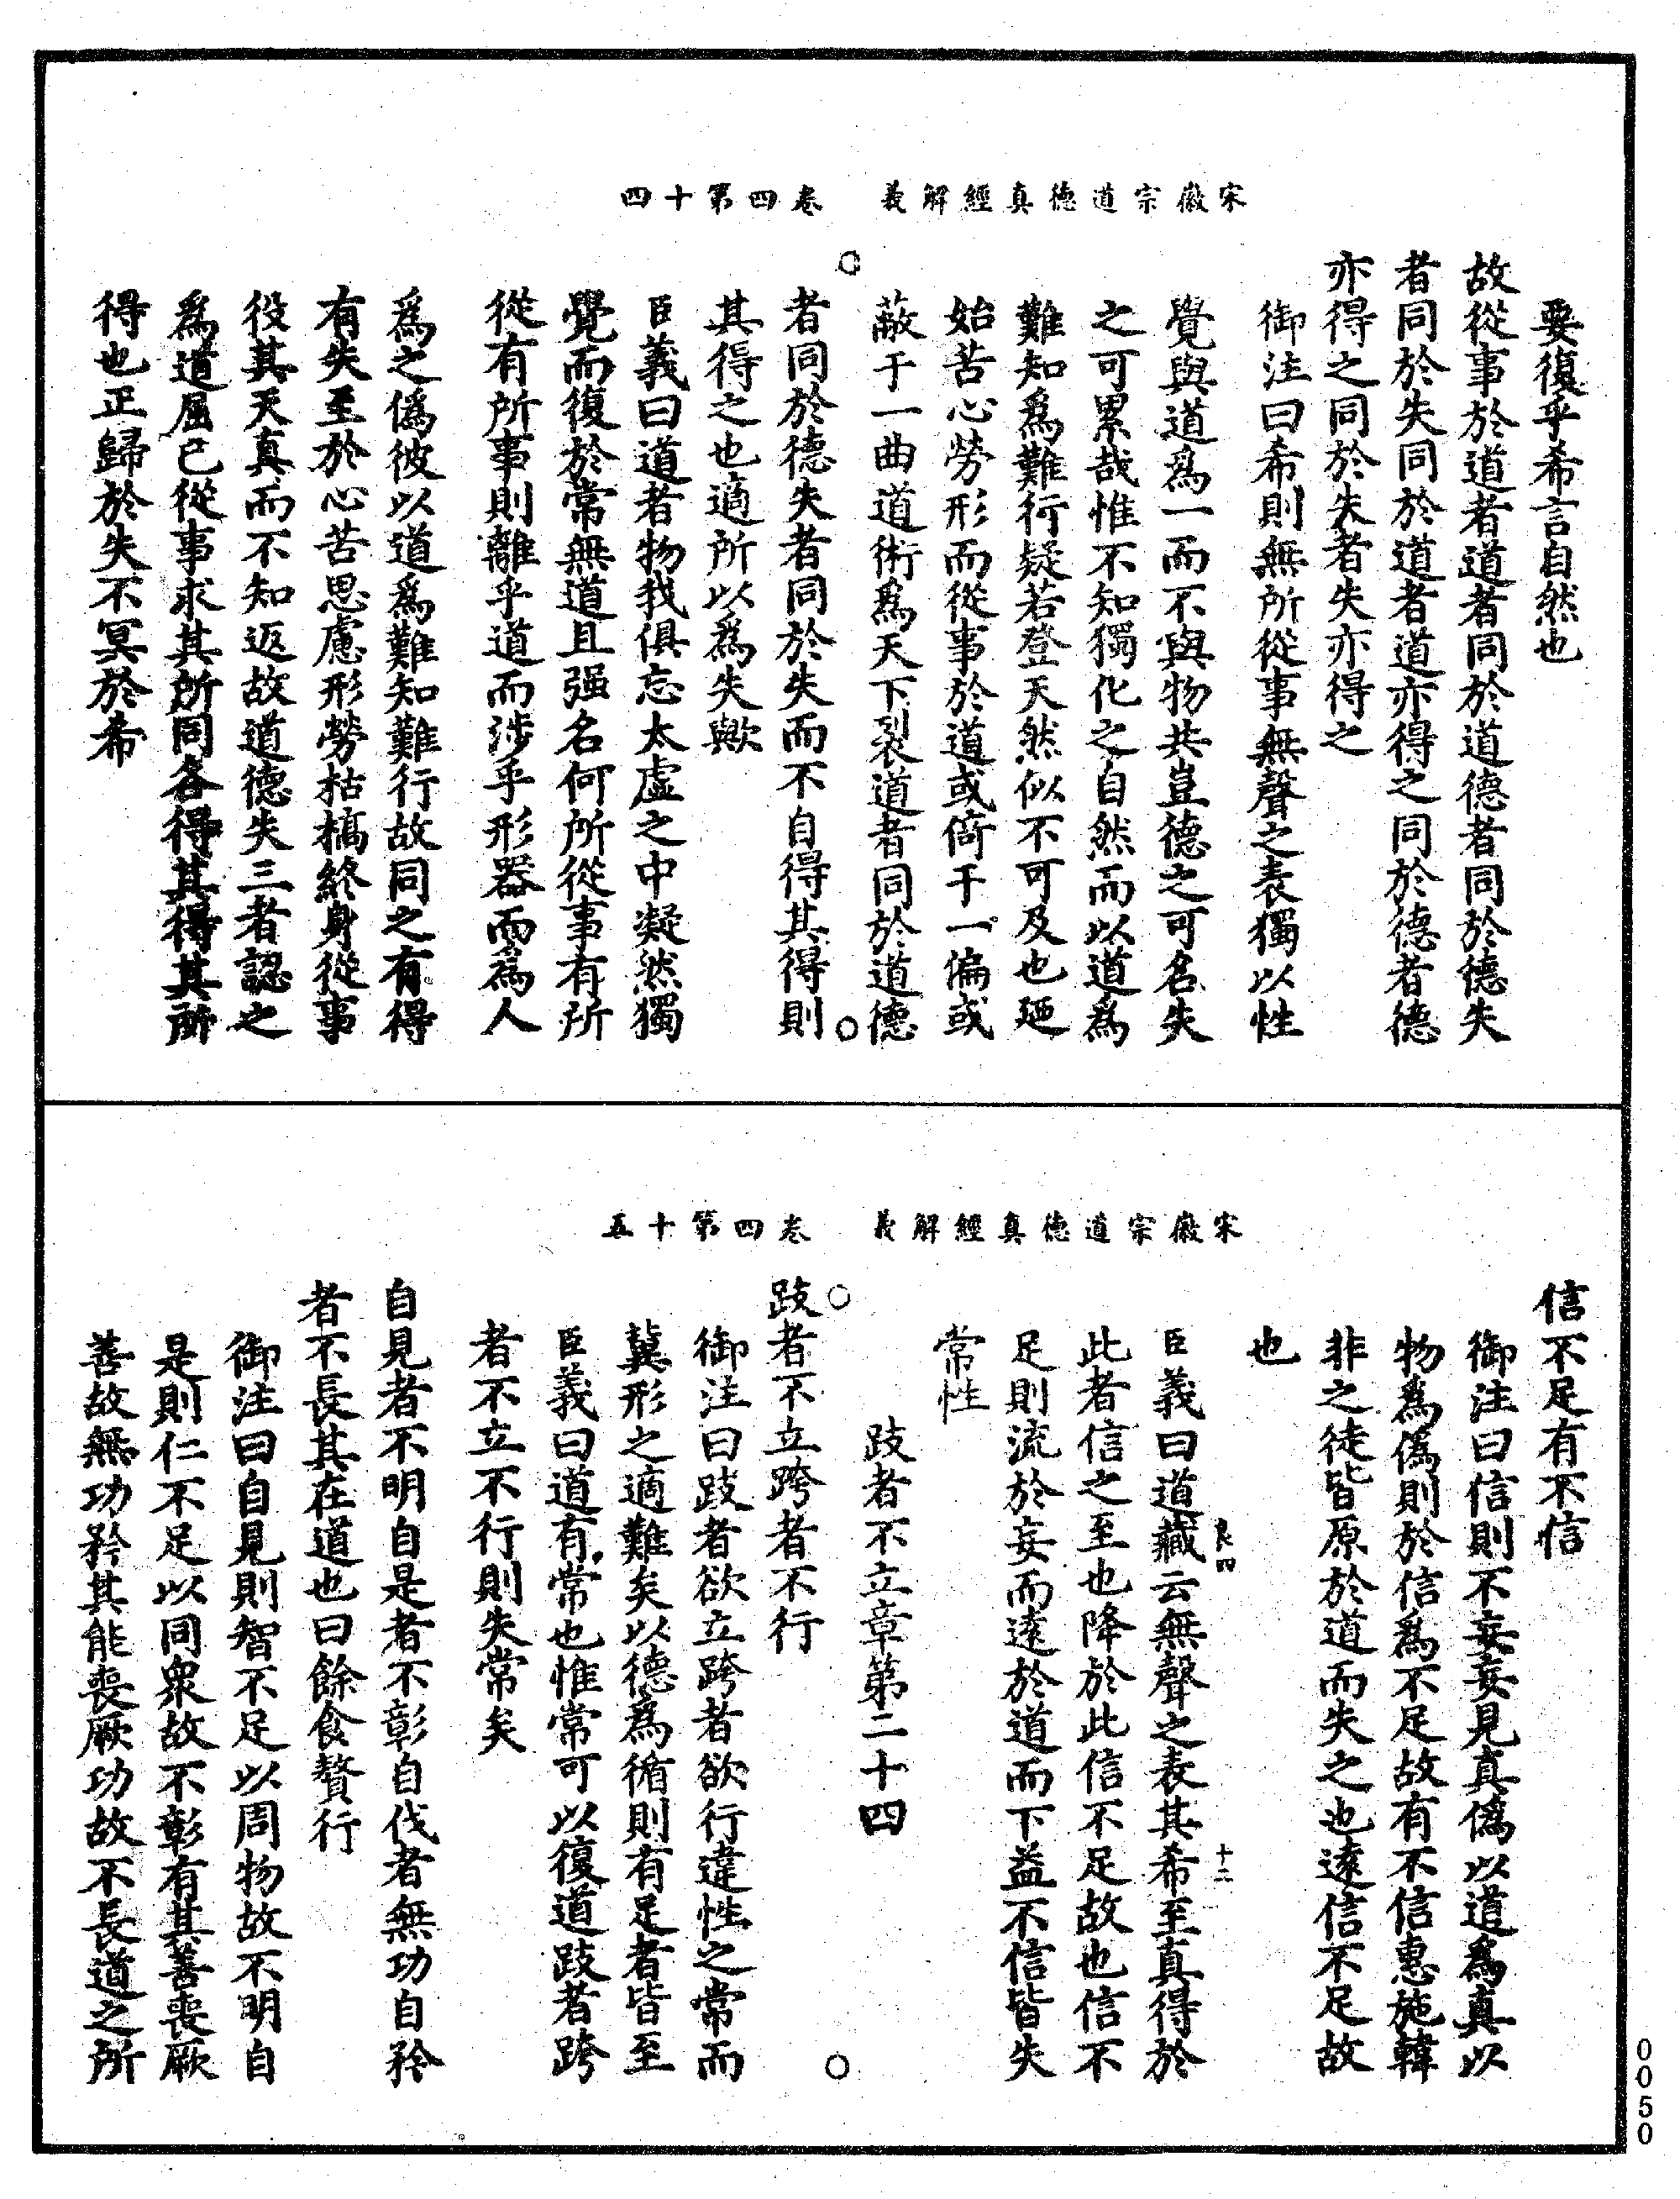 宋徽宗道德真經解義　卷四第十四
要復乎希言自然也
故從事於道者道者同於道德者同於德失
者同於失同於道者道亦得之同於德者德
亦得之同於失者失亦得之
御注曰希則無所從事無聲之表獨以性
覺與道爲一而不與物共豈德之可名失
之可累哉惟不知獨化之自然而以道爲
難知爲難行疑若登天然似不可及也廼
始苦心勞形而從事於道或倚于一偏或
蔽于一曲道術爲天下裂道者同於道德
者同於德失者同於失而不自得其得則
其得之也適所以爲失歟
臣義曰道者物我俱忘太虛之中凝然獨
覺而復於常無道且强名何所從事有所
從有所事則離乎道而涉乎形器而爲人
爲之僞彼以道爲難知難行故同之有得
有失至於心苦思慮形勞枯槁終身從事
役其天真而不知返故道德失三者認之
爲道屈己從事求其所同各得其得其所
得也正歸於失不冥於希
宋徽宗道德真經解義　卷四第十五
信不足有不信
御注曰信則不妄妄見真僞以道爲真以
物爲僞則於信爲不足故有不信惠施韓
非之徒皆原於道而失之也遠信不足故
也
臣義曰道藏云無聲之表其希至真得於
良四　十二
此者信之至也降於此信不足故也信不
足則流於妄而遠於道而下益不信皆失
常性
跂者不立章第二十四
跂者不立跨者不行
御注曰跂者欲立跨者欲行違性之常而
冀形之適難矣以德爲循則有足者皆至
臣義曰道有常也惟常可以復道跂者跨
者不立不行則失常矣
自見者不明自是者不彰自伐者無功自矜
者不長其在道也曰餘食贅行
御注曰自見則智不足以周物故不明自
是則仁不足以同衆故不彰有其善喪厥
善故無功矜其能喪厥功故不長道之所
0050